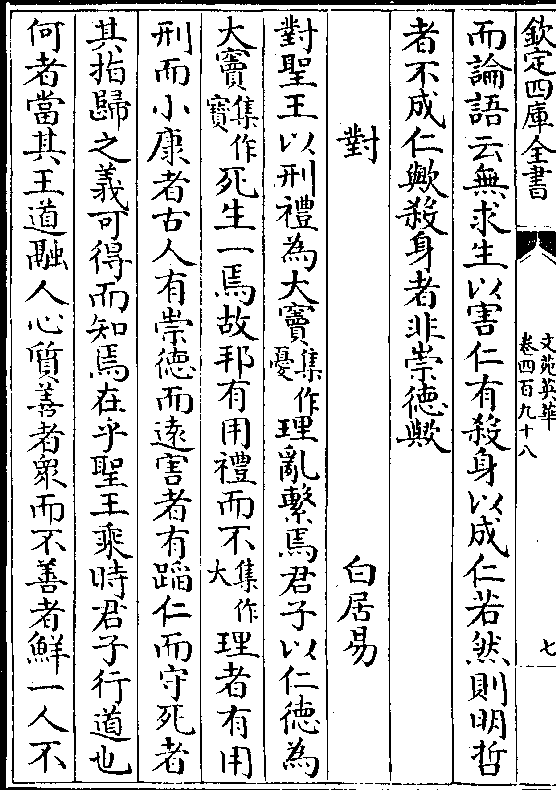 欽定四庫全書
文苑英華
卷四百九十八
七
而論語云無求生以害仁有殺身以成仁若然則明哲
者不成仁歟殺身者非崇德歟
對
白居易
對聖王以刑禮為大竇集作憂理亂繫焉君子以仁德為
大竇集作寶死生一焉故邦有用禮而不集作大理者有用
刑而小康者古人有崇德而遠害者有蹈仁而守死者
其指歸之義可得而知焉在乎聖王乘時君子行道也
何者當其王道融人心質善者衆而不善者鮮一人不